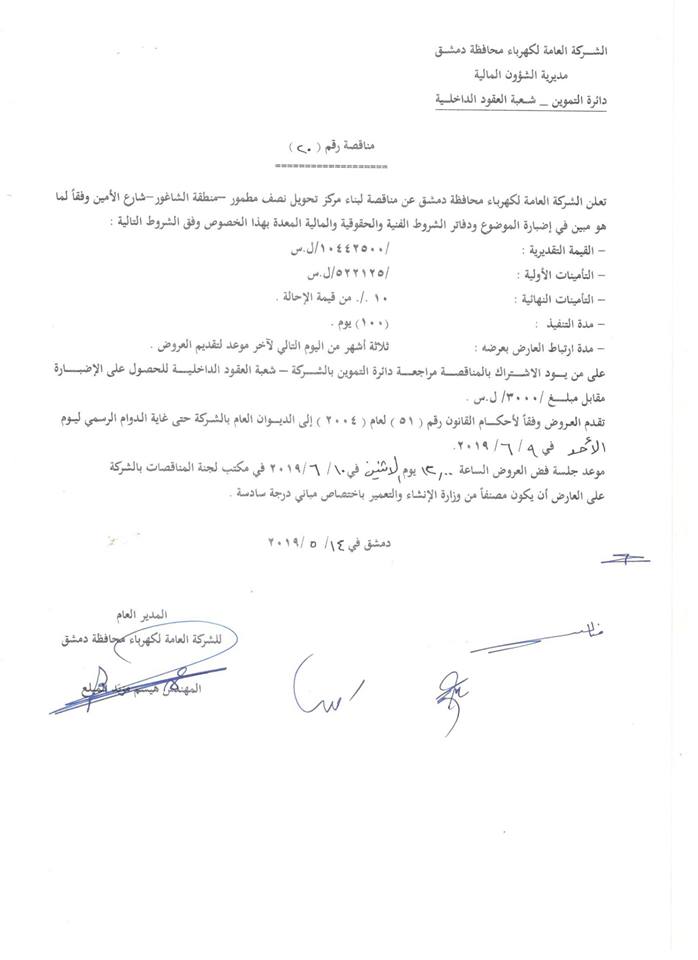 الشركة العامة لكهرباء محافظة دمشق
مديرية الشؤون المالية
دائرة التموين _ شعبة العقود الداخلية
مناقصة رقم ( ٢٠ )
===================
تعلن الشركة العامة لكهرباء محافظة دمشق عن مناقصة لبناء مركز تحويل نصف مطمور –منطقة الشاغور–شارع الأمين وفقاً لما
هو مبين في إضبارة الموضوع ودفاتر الشروط الفنية والحقوقية والمالية المعدة بهذا الخصوص وفق الشروط التالية :
– القيمة التقديرية : /١٠٤٤٢٥٠٠/ل.س
– التأمينات الأولية : /٥٢٢١٢٥/ل.س
– التأمينات النهائية : ١٠ ./. من قيمة الإحالة .
– مدة التنفيذ : (١٠٠) يوم .
– مدة ارتباط العارض بعرضه : ثلاثة أشهر من اليوم التالي لآخر موعد لتقديم العروض .
على من يود الاشتراك بالمناقصة مراجعة دائرة التموين بالشركة – شعبة العقود الداخلية للحصول على الإضبارة
مقابل مبلغ /٣٠٠٠/ ل.س .
تقدم العروض وفقاً لأحكام القانون رقم ( ٥١ ) لعام ( ٢٠٠٤ ) إلى الديوان العام بالشركة حتى غاية الدوام الرسمي ليوم
الأحد في ٩ / ٦ / ٢٠١٩.
موعد جلسة فض العروض الساعة ١٢,٠٠ يوم الاثنين في ١٠/ ٦ / ٢٠١٩ في مكتب لجنة المناقصات بالشركة
على العارض أن يكون مصنفاً من وزارة الإنشاء والتعمير باختصاص مباني درجة سادسة .
دمشق في ١٤/ ٥ /٢٠١٩
المدير العام
للشركة العامة لكهرباء محافظة دمشق
المهندس هيسم